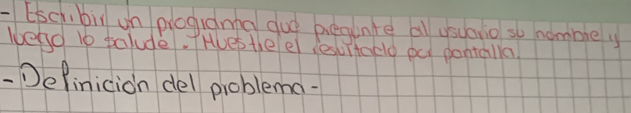 - Escribir un programa que pregunte al usuario su nombre y
luego lo salude. Muestre el resultado por pantalla.
- Definición del problema -